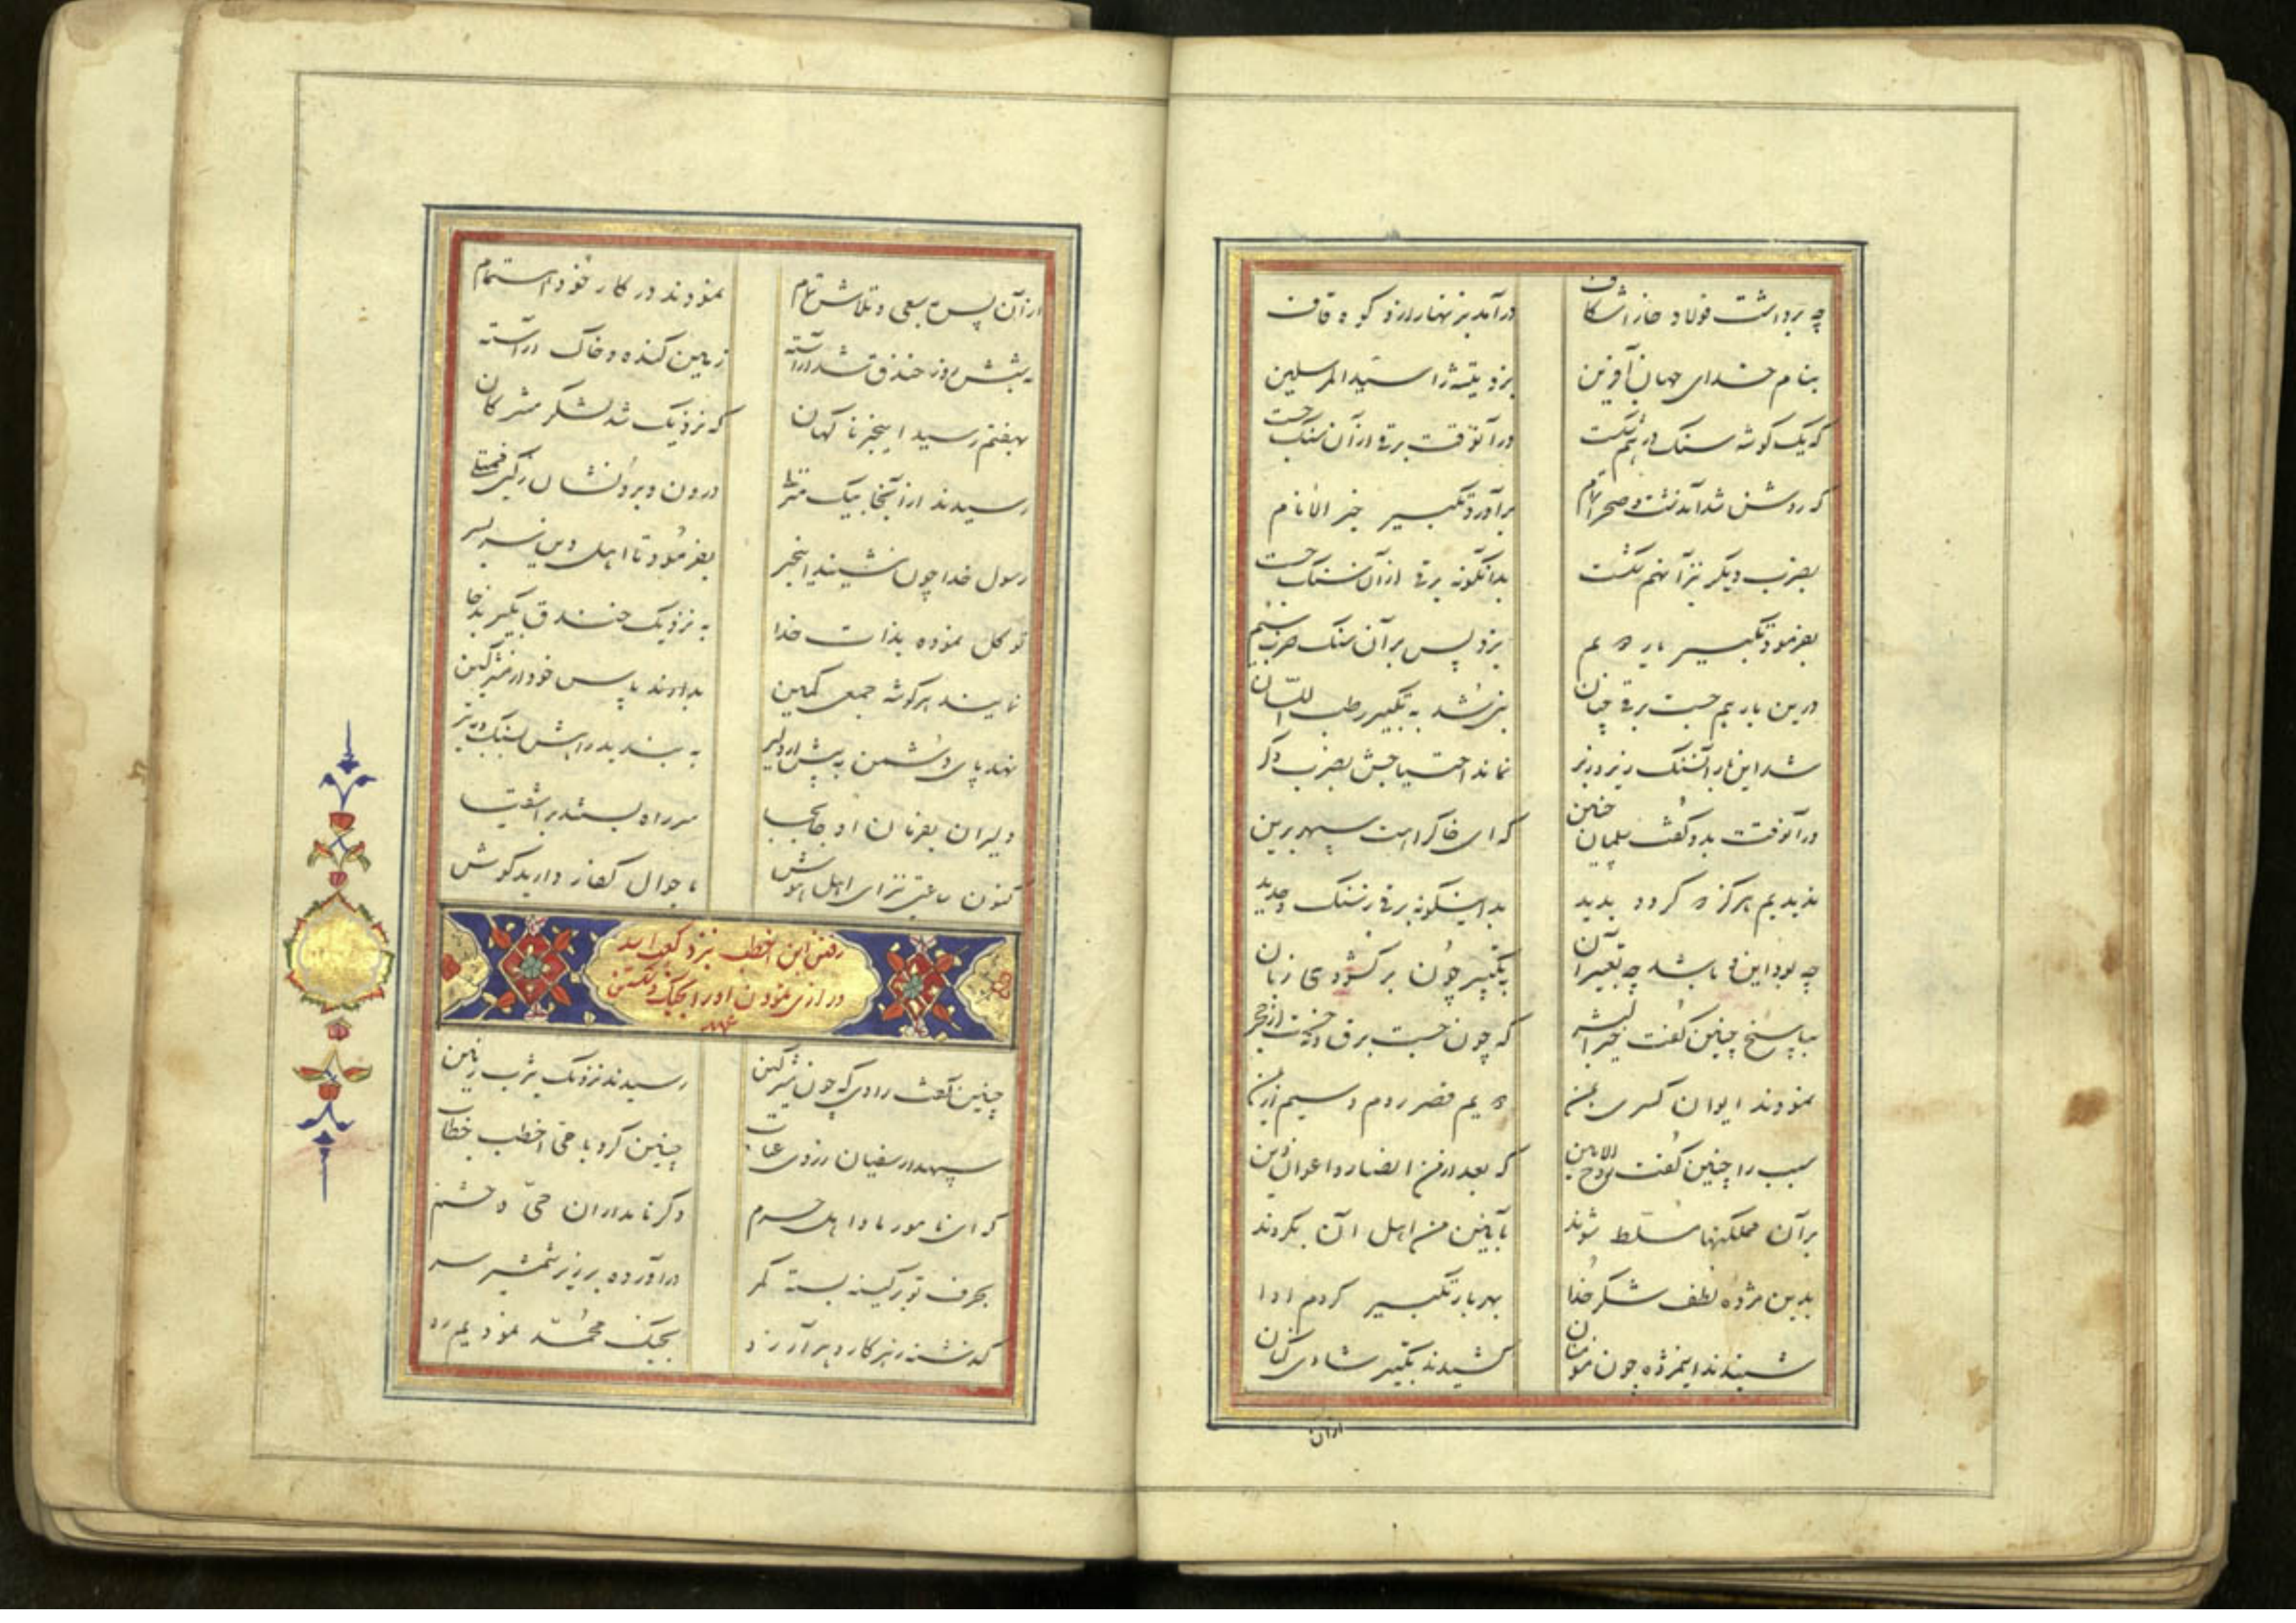 چو برداشت فولاد خارا شکاف درآمد بزنهار ازو کوه قاف
بنام خدای جهان آفرین بزد تیشه را سید المرسلین
که یک گوشه سنک درهم شکست درآنوقت برقی از آن سنگ جست
که روشن شد آندشت و صحرا تمام برآورد تکبیر خیر الانام
بضرب دیگر نیز آنهم شکست بدانگونه برقی از آن سنک جست
بفرمود تکبیر بار دویم بزد پس بر آن سنک ضرب سیم
درین بار هم جست برقی چنان نبی شد به تکبیر رطب اللسان
شد این بار آن سنک زیر و زبر نماند احتیاجش بضرب دگر
درآنوقت بدو گفت سلمان چنین که ای خاک راهت سپهر برین
ندیدیم هرگز که گردد پدید بدینگونه برقی ز سنک و حدید
چه بود این و باشد چه تعبیر آن بتکبیر چون برگشودی زبان
بپاسخ چنین گفت خیر البشر که چون جست برق نخست از حجر
نمودند ایوان کسری بمن دویم قصر روم و سیم از یمن
سبب را چنین گفت روح الامین که بعد از من انصار و اعوان دین
بر آن مملکتها مسلط شوند بآیین من اهل آن بگروند
بدین مژده و لطف شکر خدا بهر بار تکبیر کردم ادا
شنیدند این مژده چون مؤمنان کشیدند تکبیر شادی کنان
از آن
از آن پس بسعی و تلاش تمام نمودند در کار خود اهتمام
بشش روز خندق شد آراسته زمین کنده و خاک آراسته
بهفتم رسید این خبر ناگهان که نزدیک شد لشگر مشرکان
رسیدند از آنجا بیک
رسول خدا چون شنید این خبر بفرمود تا اهل دین سر بسر
توکل نموده بذات خدا به نزدیک خندق بگیرند جا
نمایند هر گوشه جمعی کمین بدارند پاس خود از مشرکین
نهد پای دشمن چو پیش از دلیر به بندند راهش بسنک و به تیر
دلیران بفرمان او جابجا سر راه بستند بر اشقیا
کنون ساعتی نیز ای اهل هوش باحوال کفار دارید گوش
رفتن ابن اخطب نزد کعب اسد
در ازی نمودن او را بجنگ
چنین گفت راوی که چون مشرکین رسیدند نزدیک یثرب زمین
سپهدار سفیان ز روی عتاب چنین کرد با حی اخطب خطاب
که ای نامور ما و اهل حرم دگر نامداران حی و حشم
بحرف تو بر کینه بسته کمر درآورده بر زیر شمشیر سر
گذشته ز هر کار و هر آرزو بجنگ محمد نمودیم رو